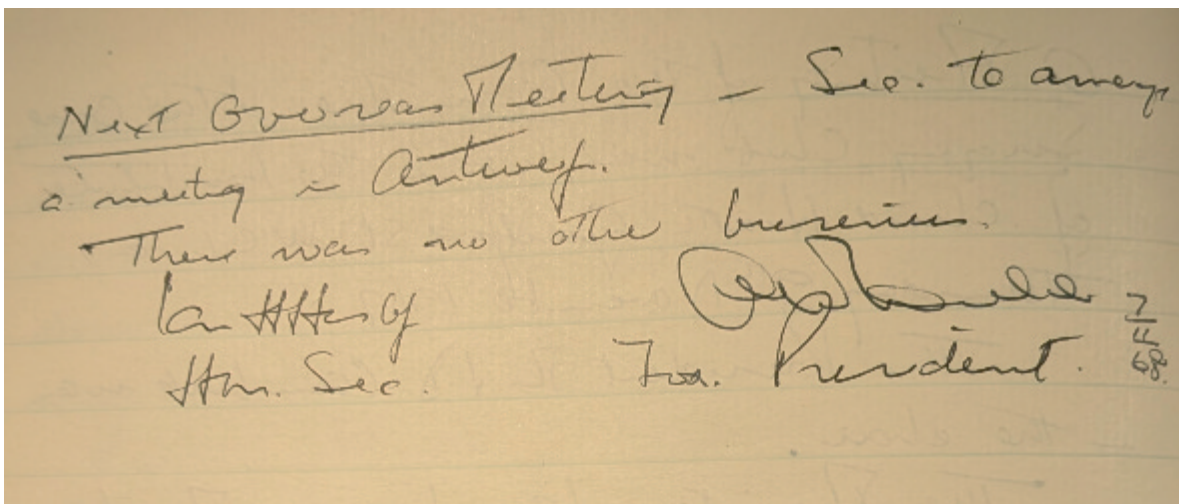 Next Overseas Meeting – Sec. to arrange
a meeting in Antwerp.
There was no other business.
Hon. Sec.
For. President.
7
4
68.